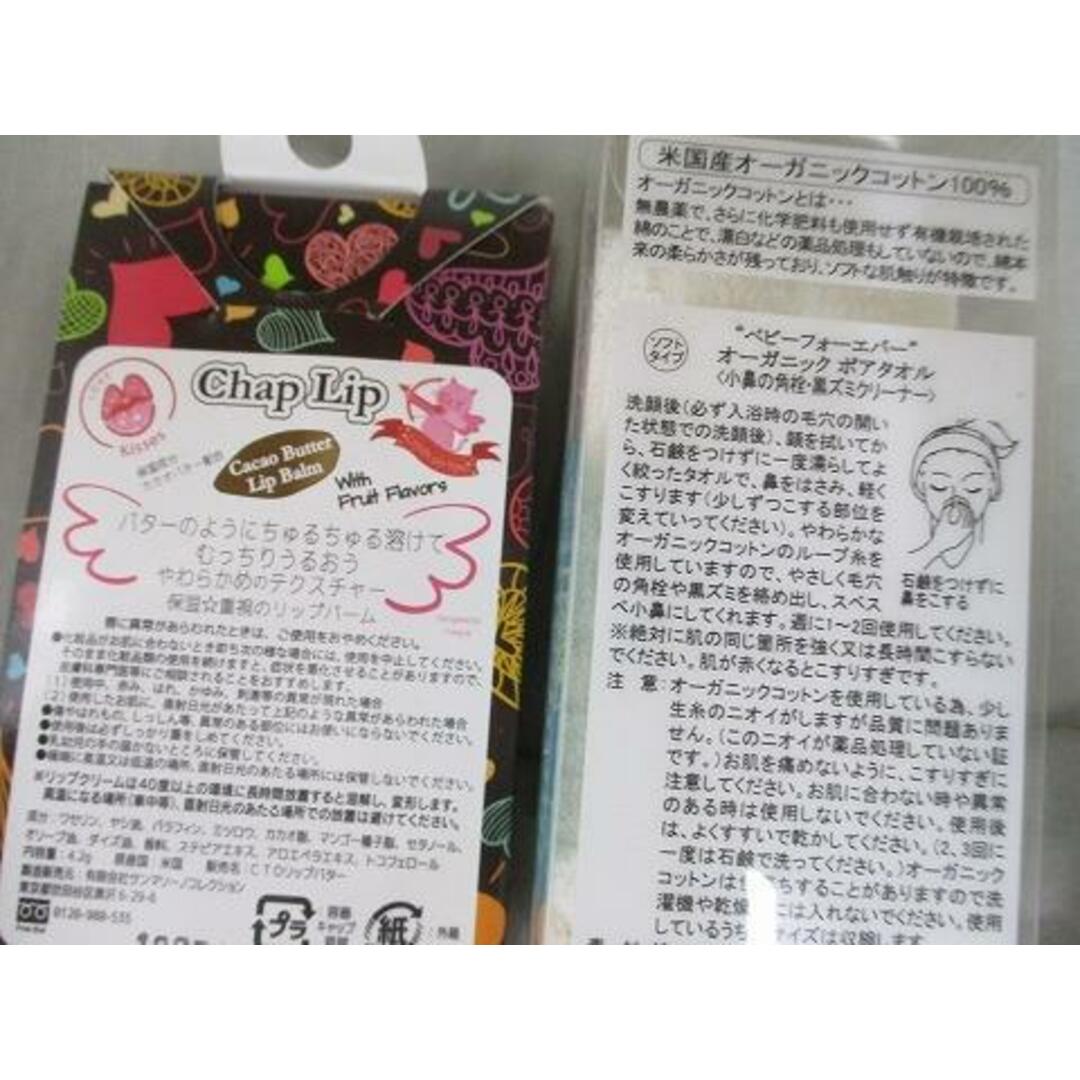 Chap Lip
Kisses
保湿成分
カカオバター配合
Cacao Butter
Lip Balm
With
Fruit Flavors
バターのようにちゅるちゅる溶けて
むっちりうるおう
やわらかめのテクスチャー
保湿☆重視のリップバーム
唇に異常があらわれたときは、ご使用をおやめください。
●化粧品がお肌に合わないとき即ち次の様な場合には、使用を中止してください。
そのまま化粧品類の使用を続けますと、症状を悪化させることがありますので、
皮膚科専門医等にご相談されることをおすすめします。
(1)使用中、赤み、はれ、かゆみ、刺激等の異常が現れた場合
(2)使用したお肌に、直射日光があたって上記のような異常があらわれた場合
●傷やはれもの、しっしん等、異常のある部位にはお使いにならないでください。
●使用後は必ずしっかり蓋をしめてください。
●乳幼児の手の届かないところに保管してください。
●極端に高温又は低温の場所、直射日光のあたる場所には保管しないでください。
※リップクリームは40度以上の環境に長時間放置すると溶解し、変形します。
高温になる場所(車中等)、直射日光のあたる場所での放置は避けてください。
成分:ワセリン、ヤシ油、パラフィン、ミツロウ、カカオ脂、マンゴー種子脂、セタノール、
オリーブ油、ダイズ油、香料、ステビアエキス、アロエベラエキス、トコフェロール
内容量:4.2g 原産国:米国 販売名:CTOリップバター
製造販売元:有限会社サンマリーノコレクション
東京都世田谷区奥沢6-29-6
0120-988-535
プラ
容器
キャップ
紙
:外箱
米国産オーガニックコットン100%
オーガニックコットンとは…
無農薬で、さらに化学肥料も使用せず有機栽培された
綿のことで、漂白などの薬品処理もしていないので、綿本
来の柔らかさが残っており、ソフトな肌触りが特徴です。
ソフト
タイプ
“ベビーフォーエバー”
オーガニック ポアタオル
〈小鼻の角栓・黒ズミクリーナー〉
洗顔後(必ず入浴時の毛穴の開い
た状態での洗顔後)、顔を拭いてか
ら、石鹸をつけずに一度濡らしてよ
く絞ったタオルで、鼻をはさみ、軽く
こすります(少しずつこする部位を
変えていってください)。やわらかな
オーガニックコットンのループ糸を
使用していますので、やさしく毛穴
の角栓や黒ズミを絡め出し、スベス
ベ小鼻にしてくれます。週に1~2回使用してください。
※絶対に肌の同じ箇所を強く又は長時間こすらない
でください。肌が赤くなるとこすりすぎです。
石鹸をつけずに
鼻をこする
注 意:オーガニックコットンを使用している為、少し
生糸のニオイがしますが品質に問題ありま
せん。(このニオイが薬品処理していない証
です。)お肌を痛めないように、こすりすぎに
注意してください。お肌に合わない時や異常
のある時は使用しないでください。使用後
は、よくすすいで乾かしてください。(2、3回に
一度は石鹸で洗ってください。)オーガニック
コットンは ちすることがありますので洗
濯機や乾燥 には入れないでください。使用
しているうち サイズは収縮します。